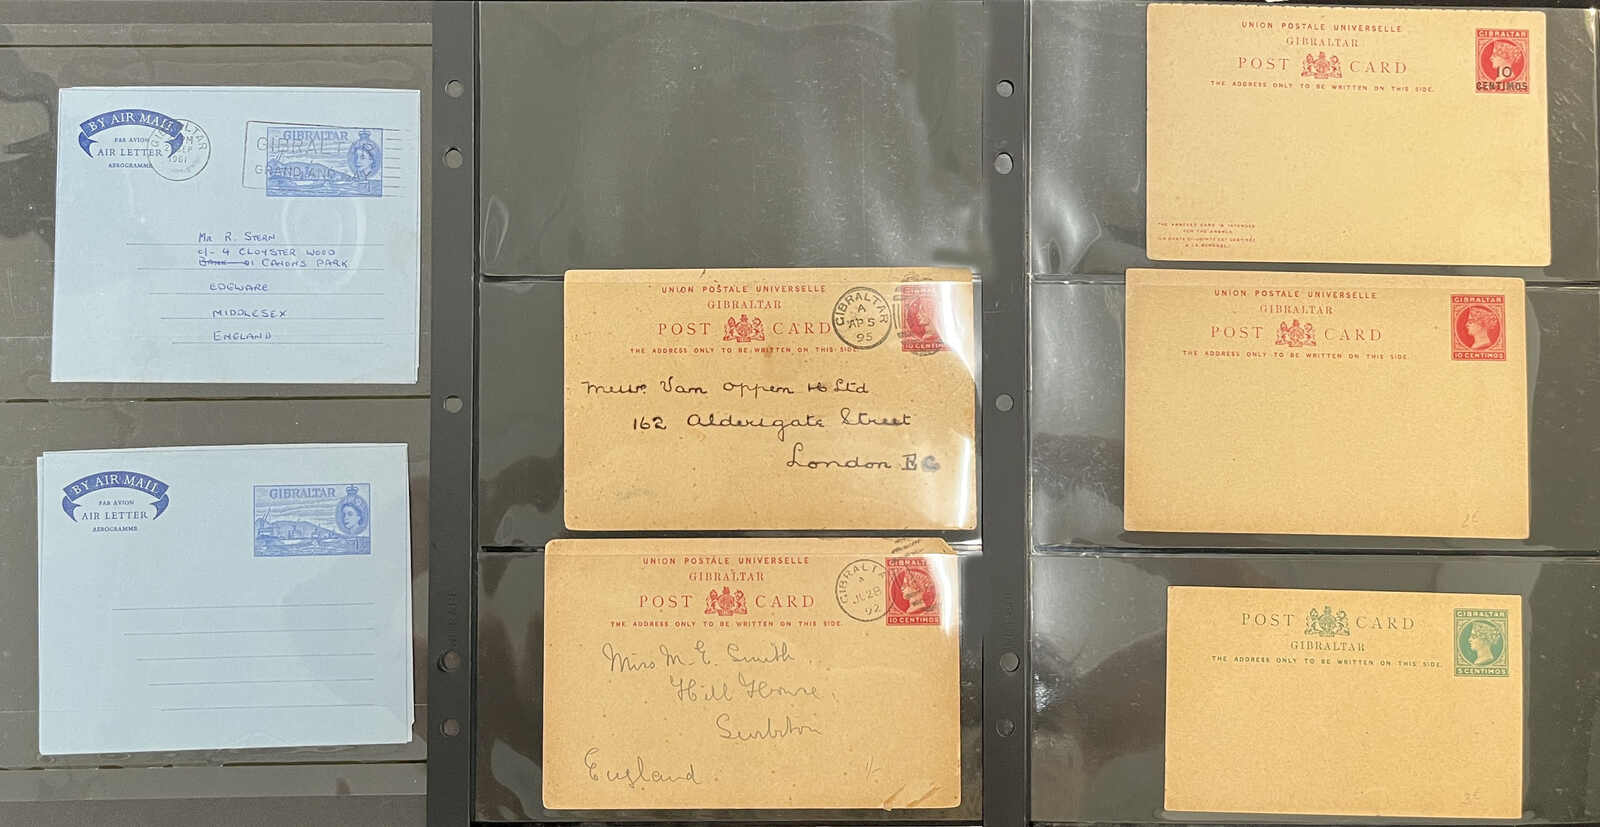 BY AIR MAIL
PAR AVION
AIR LETTER
AEROGRAMME
GIBRALTAR
SEP
1961
GIBRALTAR
GRAND AND
GIBRALTAR
Mr R. STERN
c/- 4 CLOYSTER WOOD
CANONS PARK
EDGWARE
MIDDLESEX
ENGLAND
BY AIR MAIL
PAR AVION
AIR LETTER
AEROGRAMME
GIBRALTAR
UNION POSTALE UNIVERSELLE
GIBRALTAR
POST CARD
THE ADDRESS ONLY TO BE WRITTEN ON THIS SIDE.
GIBRALTAR
A
AP 5
95
10 CENTIMOS
Messrs. Van Oppen Ltd
162 Aldersgate Street
London E C
UNION POSTALE UNIVERSELLE
GIBRALTAR
POST CARD
THE ADDRESS ONLY TO BE WRITTEN ON THIS SIDE.
GIBRALTA
A
JU 28
92
GIBRALTAR
10 CENTIMOS
Miss M. E. Smith
Hill House,
Surbiton
England
1/-
UNION POSTALE UNIVERSELLE
GIBRALTAR
POST CARD
THE ADDRESS ONLY TO BE WRITTEN ON THIS SIDE.
GIBRALTAR
10
CENTIMOS
THE ANNEXED CARD IS INTENDED
FOR THE ANSWER
LA CARTE CI-JOINTE EST DESTINÉE
A LA RÉPONSE
UNION POSTALE UNIVERSELLE
GIBRALTAR
POST CARD
THE ADDRESS ONLY TO BE WRITTEN ON THIS SIDE.
GIBRALTAR
10 CENTIMOS
2£
POST CARD
GIBRALTAR
THE ADDRESS ONLY TO BE WRITTEN ON THIS SIDE.
GIBRALTAR
5 CENTIMOS
3£